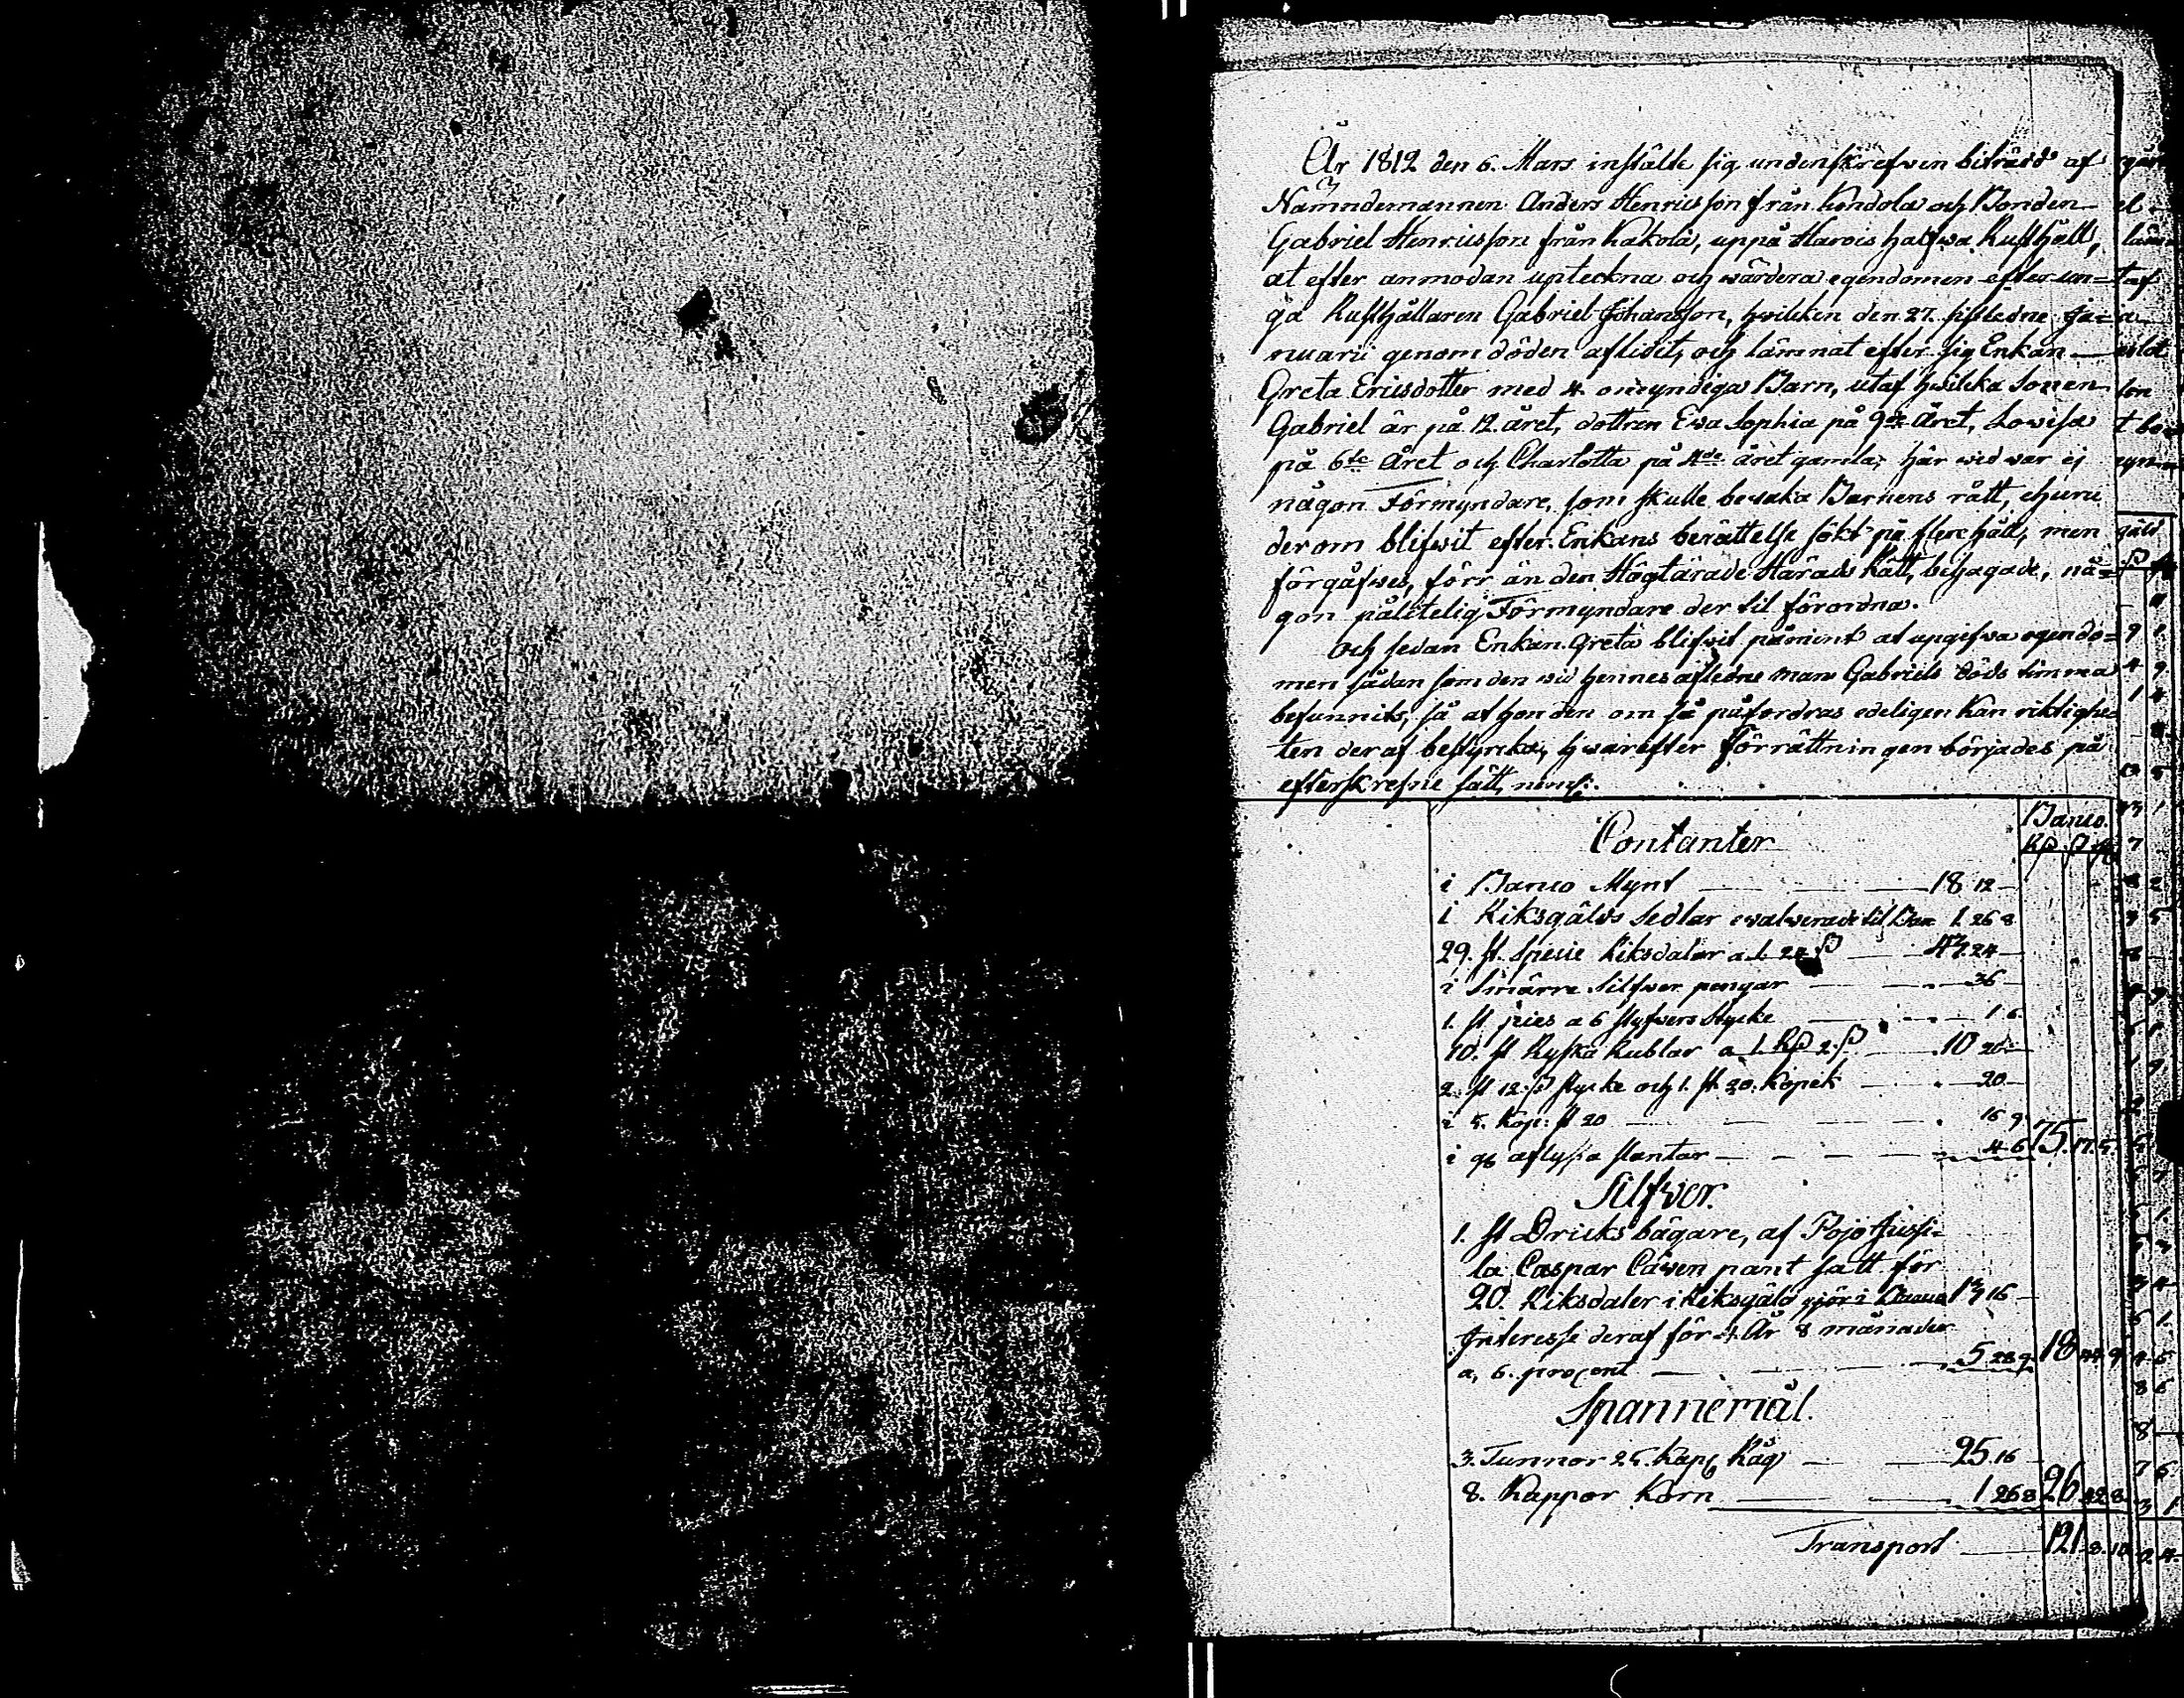 År 1812 den 6. Mars instälte sig undenskrefven biträdd af
Nämndemannen Anders Henricsson från Kondola och Bonden
Gabriel Henricsson från Kakola, uppå Harois halfwa Rusthåll,
at efter anmodan upteckna och wärdera egendomen efter un=
ga Rusthållaren Gabriel Johansson, hwilcken den 27. sistledne Ja=
nuarii genom döden aflidit, och lämnat efter sig Enkan
Greta Ericsdotter med 4. omyndiga Barn, utaf hwilcka Sonen
Gabriel är på 12 året, dottren Ewa Sophia på 9de Året, Lowisa
på 6te Året och Charlotta på 4de året gamla; här wid war ej
någon Förmyndare, som skulle bewaka Barnens rätt, ehuru
derom blifwit efter Enkans berättelse sökt på flere håll, men
förgäfwes, förr än den Högtärade Härads Rätt, behagade, nå=
gon pålitelig Förmyndare der til förordna.
Och sedan Enkan Greta blifwit påmint at upgifwa egendo=
men sådan som den wid hennes afledne mans Gabriels döds timma
befunnits, så at hon den om så påfordras edeligen kan riktighe=
ten deraf bestyrka, hwarefter Förrättningen börjades på
efterskrefne sätt, neml:
Banco.
Contanter Rß ß
i Banco Mynt 18 12
i Riksgälds Sedlar evalverade til Bco 1 26 8
29. st. Specie Riksdaler a 1. 24 ß 43 24
i Smärre Silfwer pengar 36
1. st pies a 6 styfwers Stycke 1 6
10. st Ryska Rublar a 1. Rß 2 ß 10 20
2. st 12 ß stycke och 1. st. 20. Kopek 20
i 5. Kop: st 20 16 9
i aflysta slantar 4 6 75. 17. 5.
Silfwer.
1. st Dricks bägare, af Pojo Jussi=
la Caspar Cawen pant satt för
20. Riksdaler i Riksgäld gör i Banco 13 16
Interesse deraf för 4 År 8 månader
a, 6. procent 5 28 9 18 44 9
Spannemål.
3. Tunnor 25. Kap: Råg 25 16
8. Kappor Korn 1 26 8 26 42 8
Transport 121 8 10